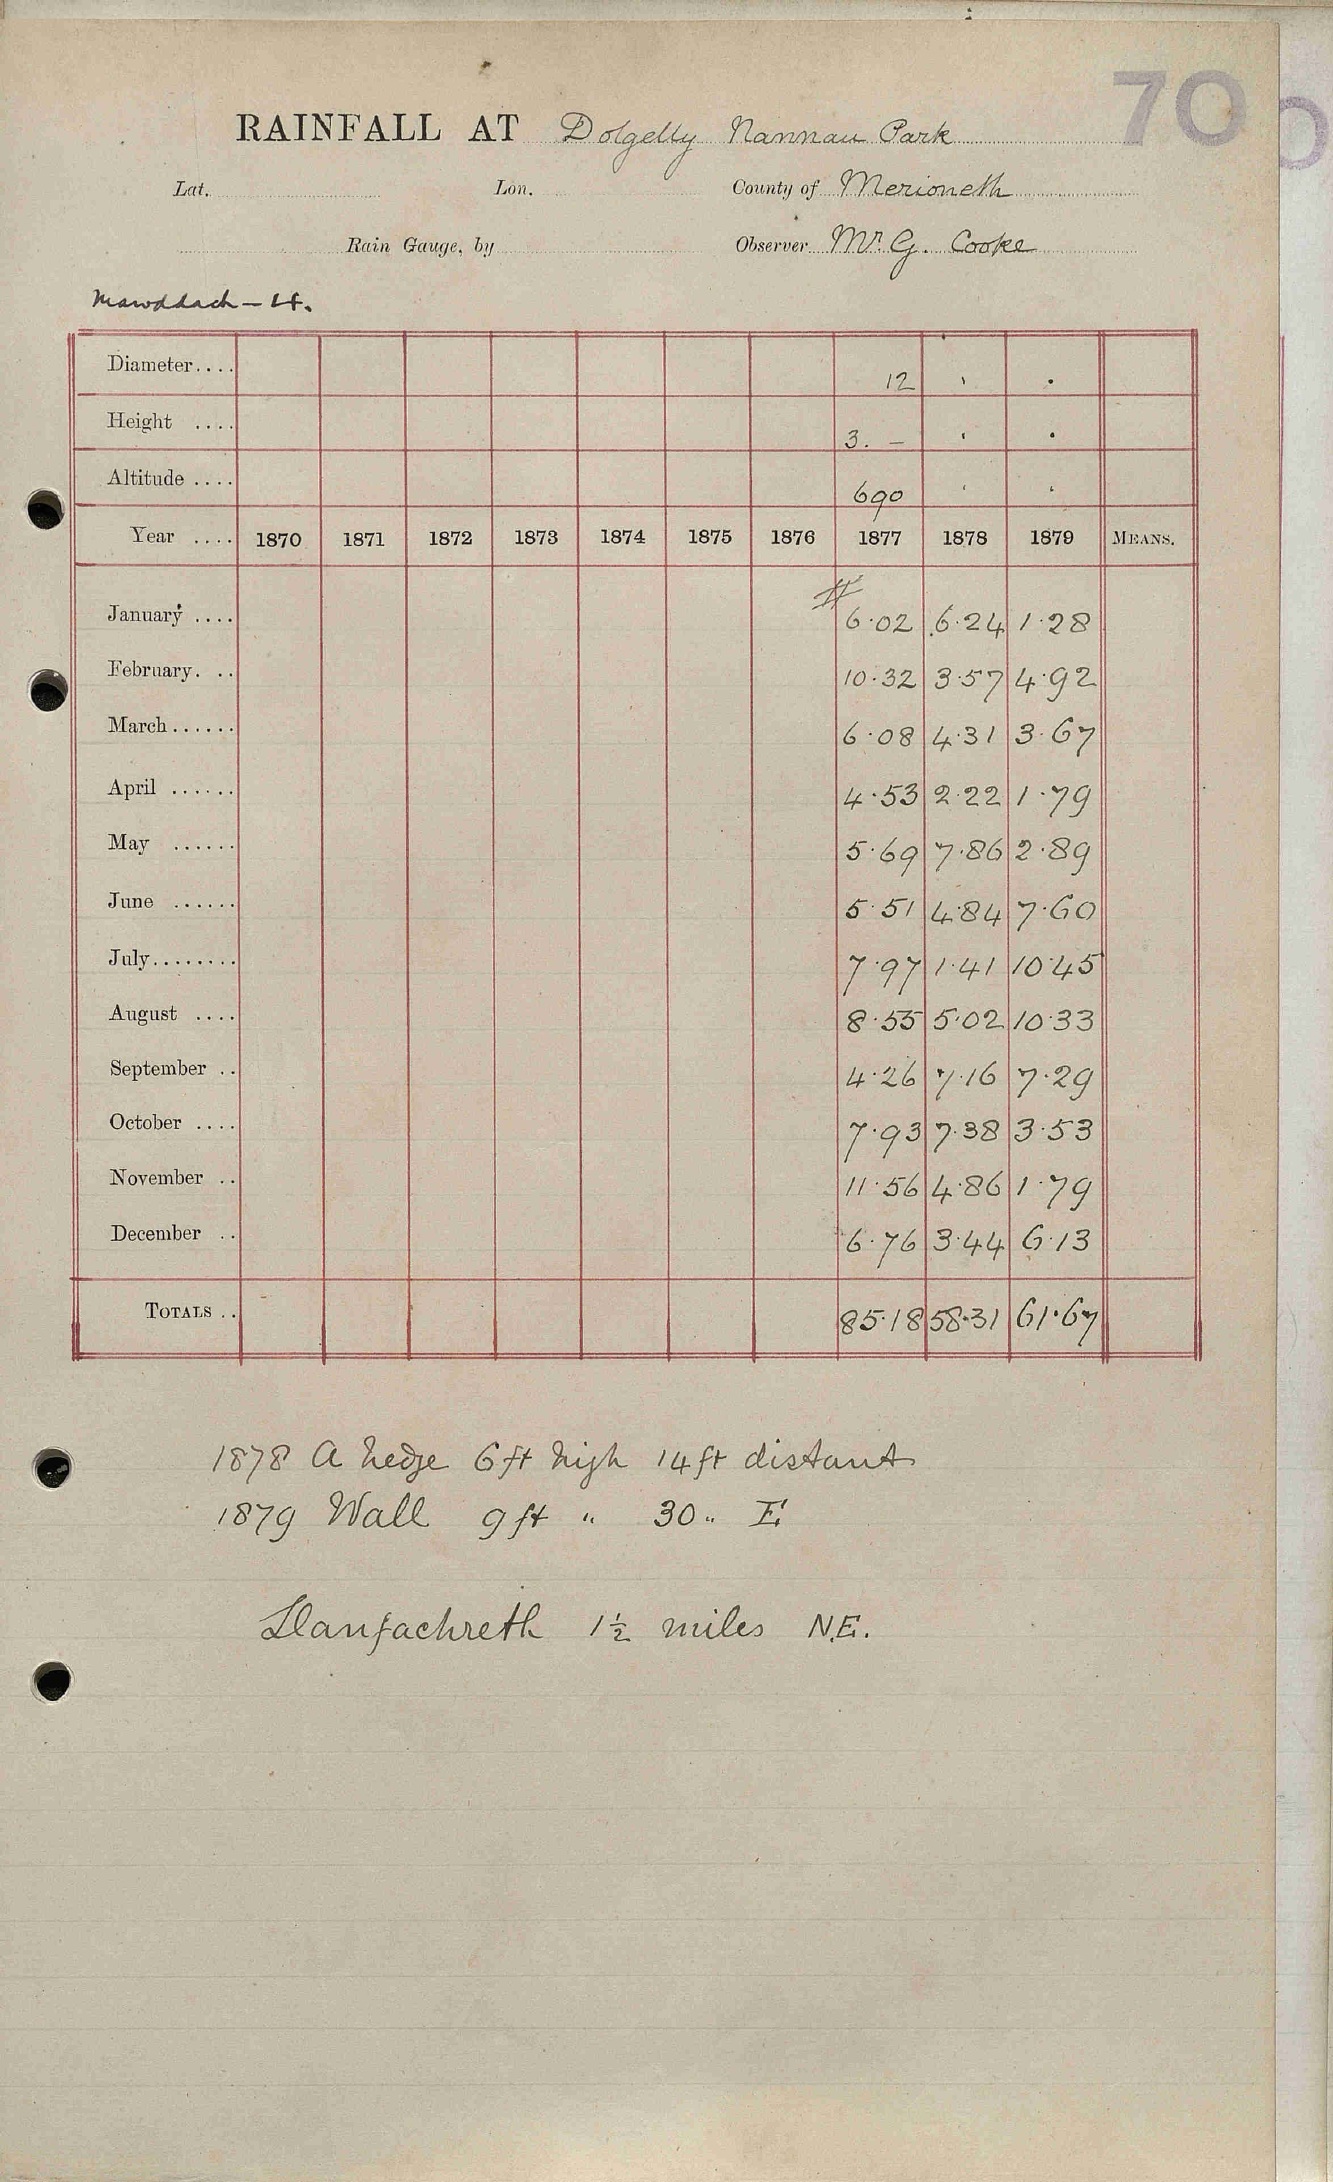 70
RAINFALL AT Dolgelly Nannau Park
Lat. Lon. County of Merioneth
Rain Gauge, by Observer Mr. G. Cooke
Mawddach — Lt.
Diameter.... 12 " "
Height .... 3. — " "
Altitude .... 690 " "
Year .... 1870 1871 1872 1873 1874 1875 1876 1877 1878 1879 MEANS.
January .... # 6.02 6.24 1.28
February. .. 10.32 3.57 4.92
March...... 6.08 4.31 3.67
April ...... 4.53 2.22 1.79
May ...... 5.69 7.86 2.89
June ...... 5.51 4.84 7.60
July........ 7.97 1.41 10.45
August .... 8.55 5.02 10.33
September .. 4.26 7.16 7.29
October .... 7.93 7.38 3.53
November .. 11.56 4.86 1.79
December .. 6.76 3.44 6.13
TOTALS .. 85.18 58.31 61.67
1878 A hedge 6 ft high 14 ft distant
1879 Wall 9 ft " 30 " E
Llanfachreth 1½ miles N.E.